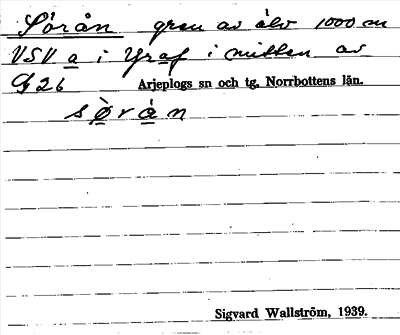 Sörån gren av älv 1000 m
VSV a i Yraf i mitten av
G26 Arjeplogs sn och tg, Norrbottens län.
sø̀rån
Sigvard Wallström, 1939.